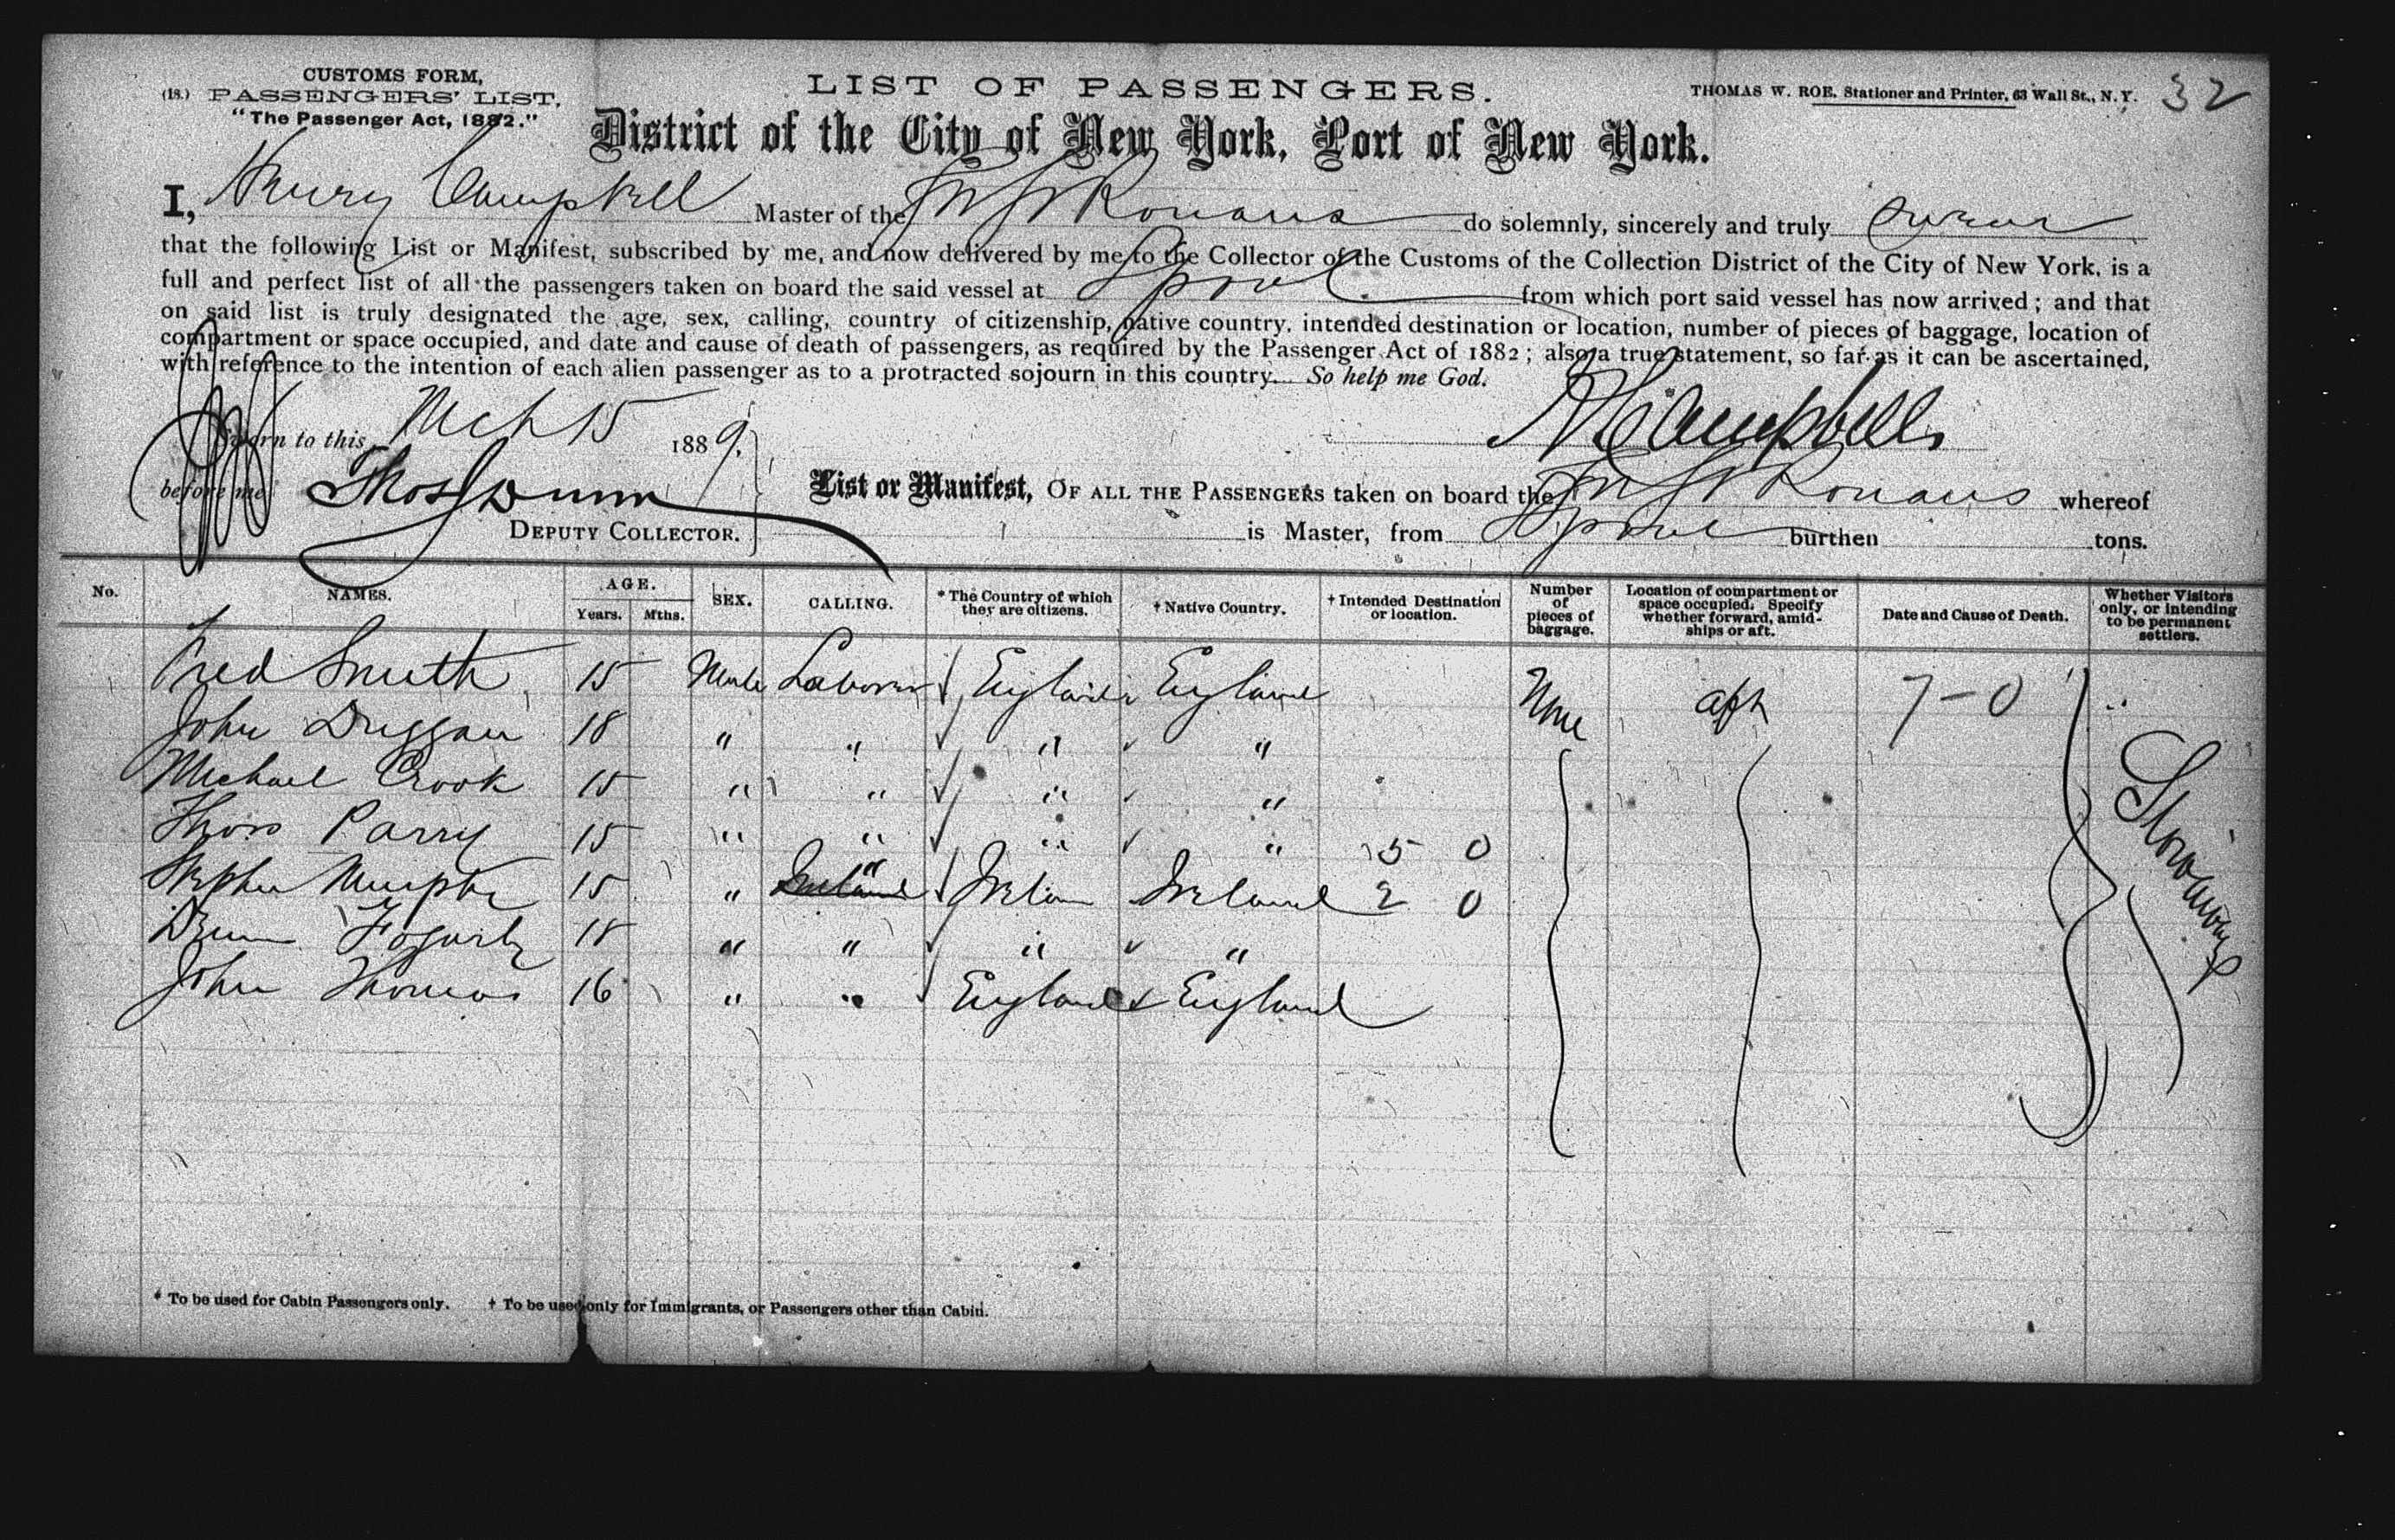 CUSTOMS FORM,
(18.) PASSENGERS' LIST,
"The Passenger Act, 1882."
LIST OF PASSENGERS.
THOMAS W. ROE, Stationer and Printer, 63 Wall St., N. Y.
32
District of the City of New York, Port of New York.
I, Henry Campbell Master of the Ronans do solemnly, sincerely and truly swear
that the following List or Manifest, subscribed by me, and now delivered by me to the Collector of the Customs of the Collection District of the City of New York, is a
full and perfect list of all the passengers taken on board the said vessel at L'pool from which port said vessel has now arrived; and that
on said list is truly designated the age, sex, calling, country of citizenship, native country, intended destination or location, number of pieces of baggage, location of
compartment or space occupied, and date and cause of death of passengers, as required by the Passenger Act of 1882; also a true statement, so far as it can be ascertained,
with reference to the intention of each alien passenger as to a protracted sojourn in this country. So help me God.
Sworn to this Mch 15 1889.
H Campbell
before me Thos Dunn
DEPUTY COLLECTOR.
List or Manifest, OF ALL THE PASSENGERS taken on board the Ronans whereof
is Master, from L'pool burthen tons.
No. NAMES. AGE. Years. Mths. SEX. CALLING. * The Country of which they are citizens. † Native Country. † Intended Destination or location. Number of pieces of baggage. Location of compartment or space occupied. Specify whether forward, amidships or aft. Date and Cause of Death. Whether Visitors only, or intending to be permanent settlers.
Fred Smith 15 Male Laborer England England None aft 7-0
John Duggan 18 " " " "
Michael Crook 15 " " " "
Thos Parry 15 " " " " 5 0
Stephen Murphy 15 " Ireland " Ireland Ireland 2 0
Fogarty 18 " " " "
John Thomas 16 " " England England
Stowaways
* To be used for Cabin Passengers only. † To be used only for Immigrants, or Passengers other than Cabin.